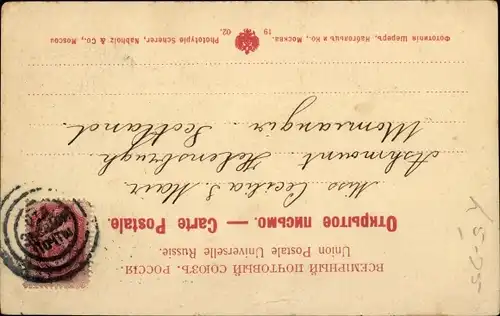 ВСЕМІРНЫЙ ПОЧТОВЫЙ СОЮЗЪ. РОССІЯ.
Union Postale Universelle Russie.
Открытое письмо. — Carte Postale.
Miss Cecilia S. Mair
Ashmount Helensburgh.
Scotland.
19 02.
Фототипія Шереръ, Набгольцъ и Ко., Москва. Phototypie Scherer, Nabholz & Co., Moscou